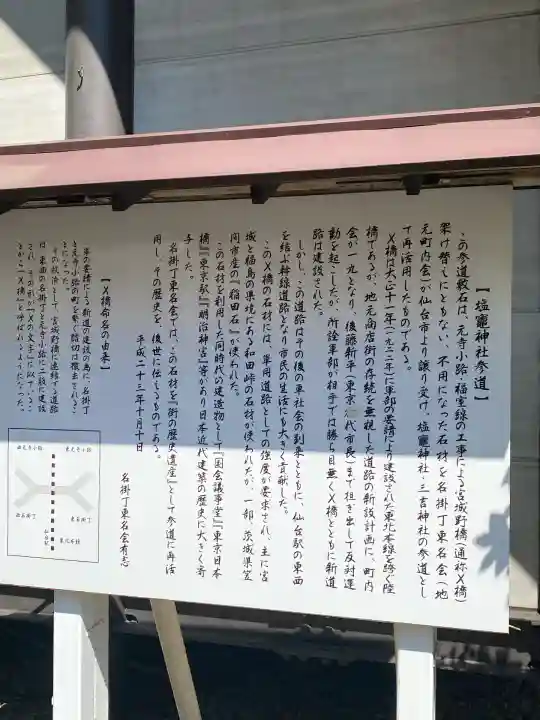 【塩竈神社参道】
この参道敷石は、元寺小路・福室線の工事による宮城野橋（通称X橋）
架け替えにともない、不用になった石材を名掛丁東名会（地
元町内会）が仙台市より譲り受け、塩竈神社・三吉神社の参道とし
て再活用したものである。
X橋は大正十一年（一九二二）に軍部の要請により建設された東北本線を跨ぐ陸
橋であるが、地元商店街の存続を無視した道路の新設計画に、町内
会が一丸となり、後藤新平（東京 代市長）まで担ぎ出して反対運
動を起こしたが、所詮軍部が相手では勝ち目無くX橋とともに新道
路は建設された。
しかし、この道路はその後の車社会の到来とともに、仙台駅の東西
を結ぶ幹線道路となり市民の生活にも大きく貢献した。
このX橋の石材には、軍用道路としての強度が要求され、主に宮
城と福島の県境にある和田峠の石材が使われたが、一部、茨城県笠
間市産の『稲田石』が使われた。
この石材を利用した同時代の建造物として『国会議事堂』『東京日本
橋』『東京駅』『明治神宮』等があり日本近代建築の歴史に大きく寄
与した。
名掛丁東名会では、この石材を『街の歴史遺産』として参道に再活
用し、その歴史を、後世に伝えるものである。
平成二十三年十月十日
名掛丁東名会有志
【X橋命名の由来】
軍の要請による新道の建設の為に、名掛丁
と元寺小路の町を繋ぐ踏切は撤去されるこ
とになった。
その救済として、宮城野橋に連結する道路
は、東西の名掛丁と元寺小路に二股に建設
され、その形が『Xの文字』に似ているこ
とから『X橋』と呼ばれるようになった。
西元寺小路
東元寺小路
西名掛丁
東名掛丁
仙台駅
東北本線